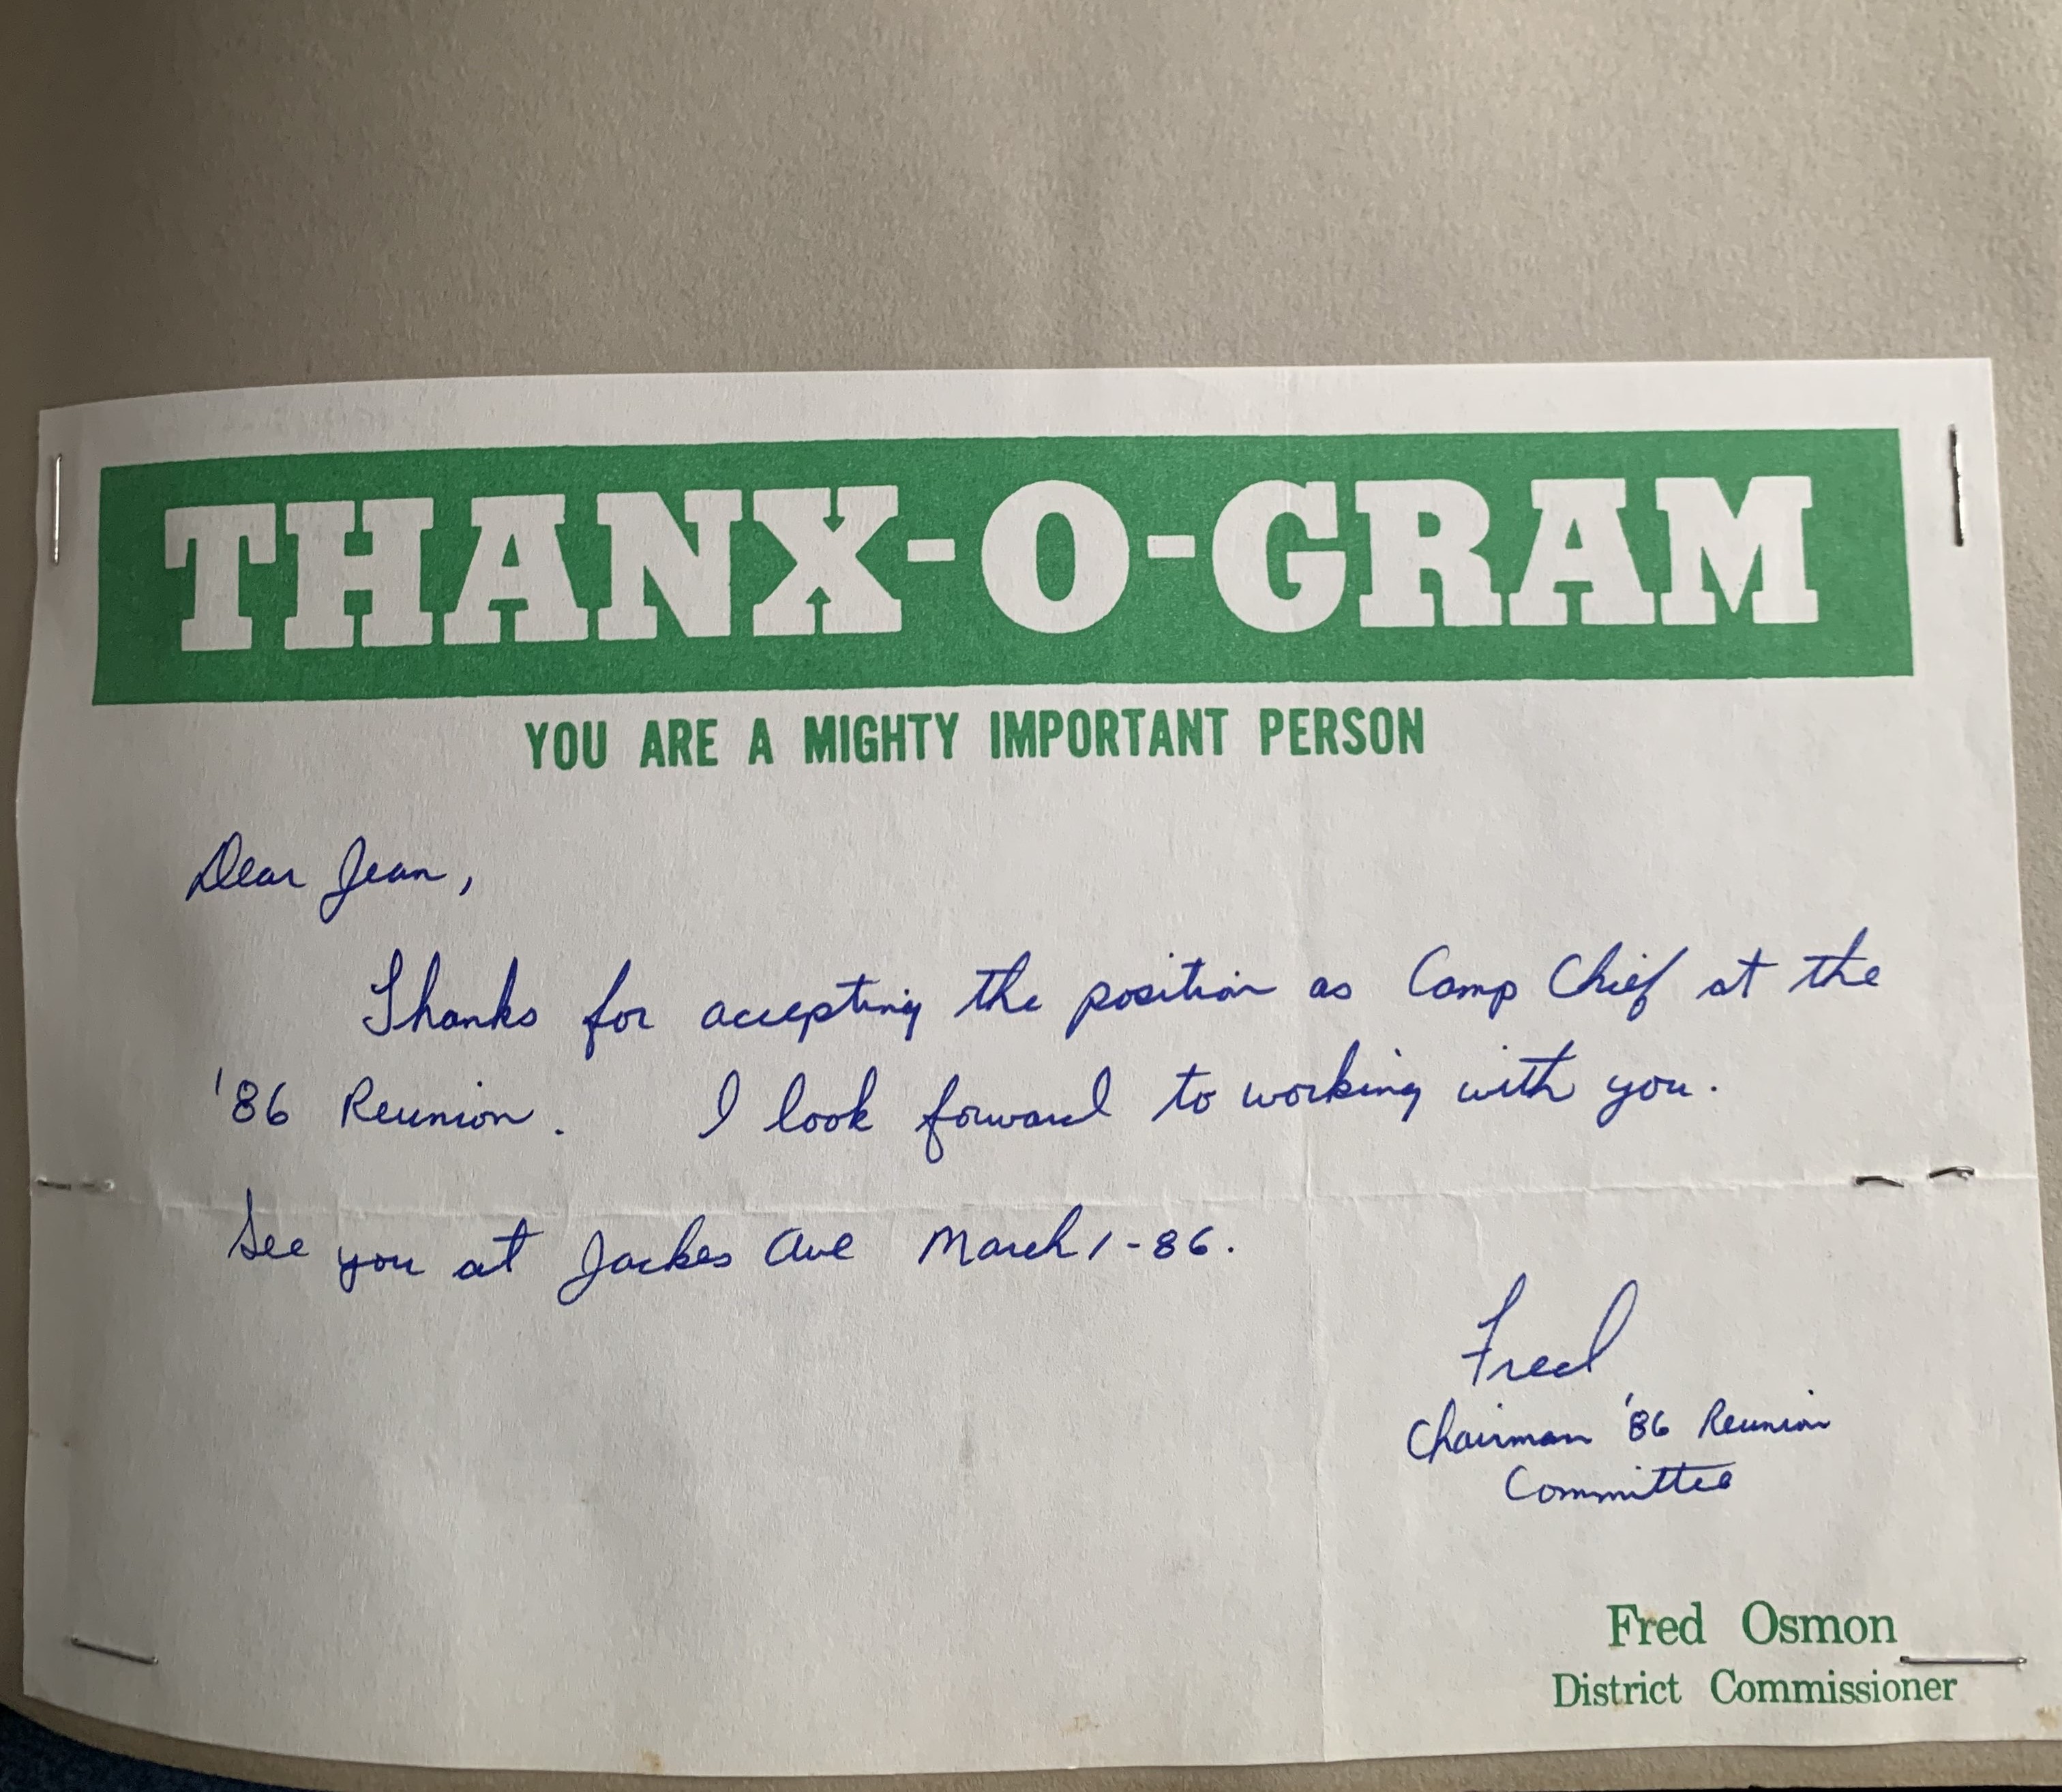 THANX-O-GRAM
YOU ARE A MIGHTY IMPORTANT PERSON
Dear Jean,
Thanks for accepting the position as Camp Chief at the
'86 Reunion. I look forward to working with you.
See you at Jackes Ave March 1-86.
Fred
Chairman '86 Reunion
Committee
Fred Osmon
District Commissioner